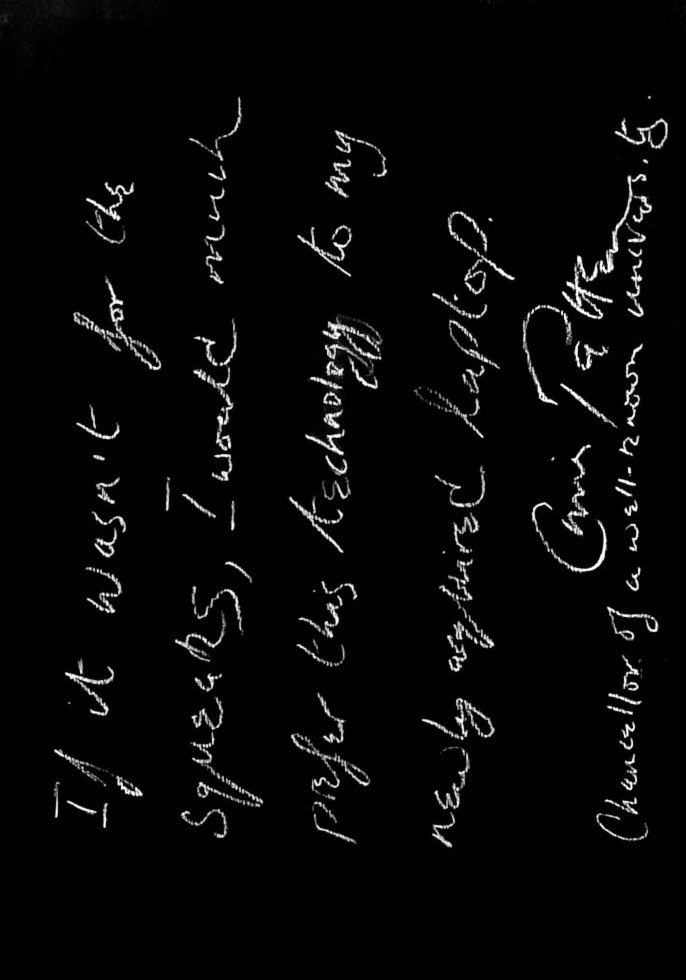 If it wasn't for the
squeaks, I would much
prefer this technology to my
newly acquired laptop.
Chris Patten
Chancellor of a well-known university.